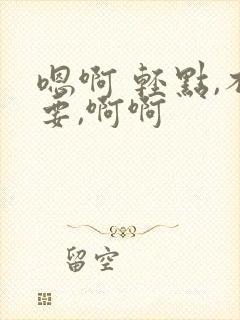 嗯啊 輕點,不
要,啊啊
留空